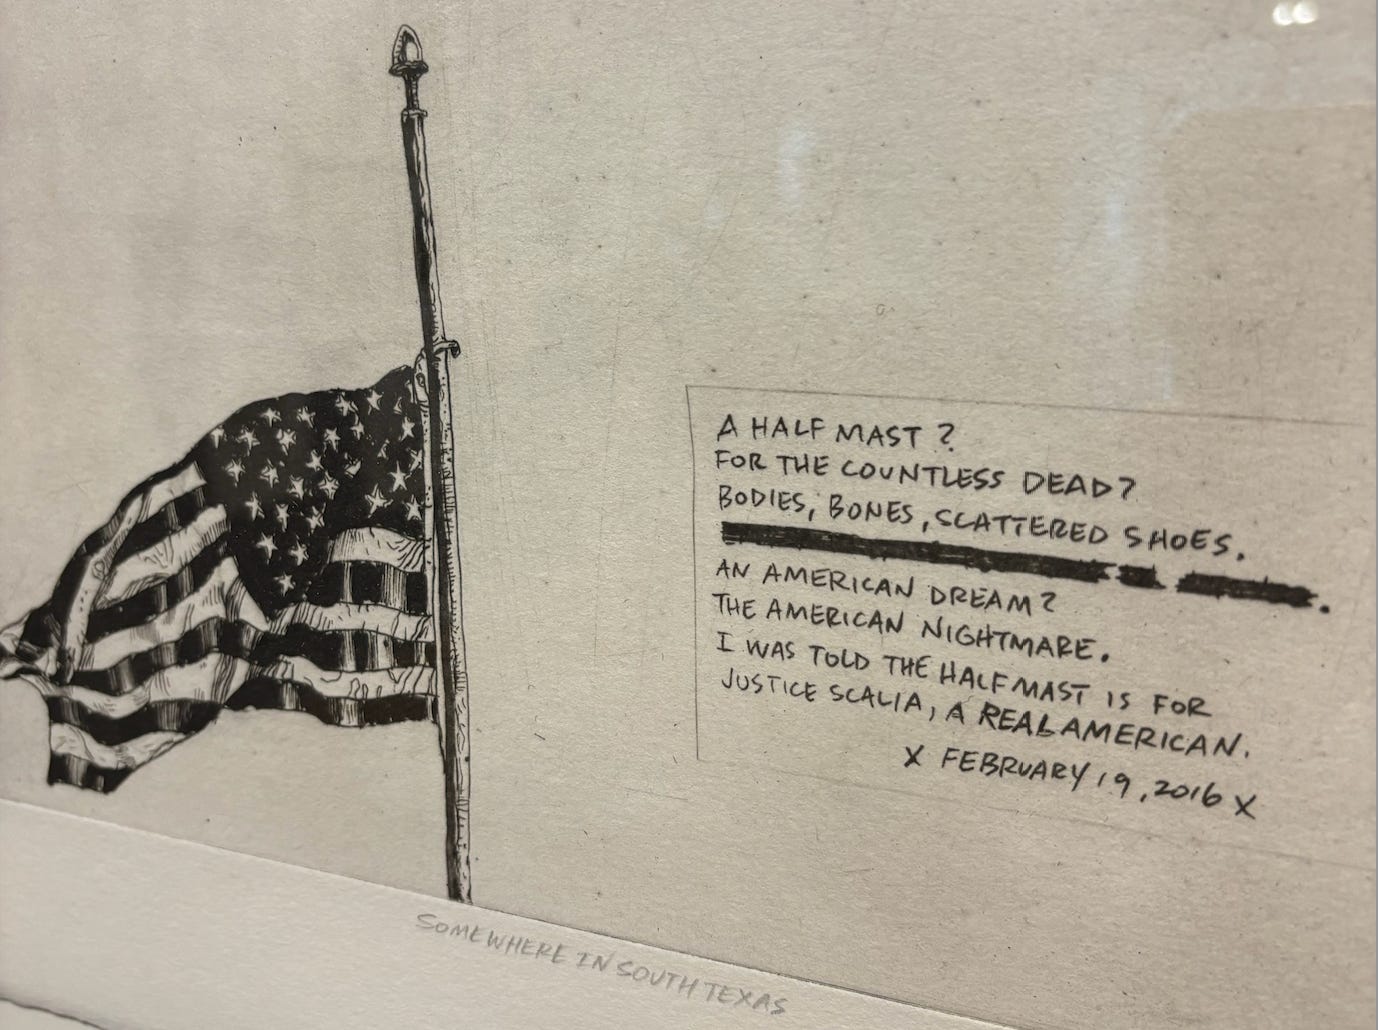 A HALF MAST ?
FOR THE COUNTLESS DEAD?
BODIES, BONES, SCATTERED SHOES.
AN AMERICAN DREAM?
THE AMERICAN NIGHTMARE.
I WAS TOLD THE HALF MAST IS FOR
JUSTICE SCALIA, A REAL AMERICAN.
X FEBRUARY 19, 2016 X
SOMEWHERE IN SOUTH TEXAS